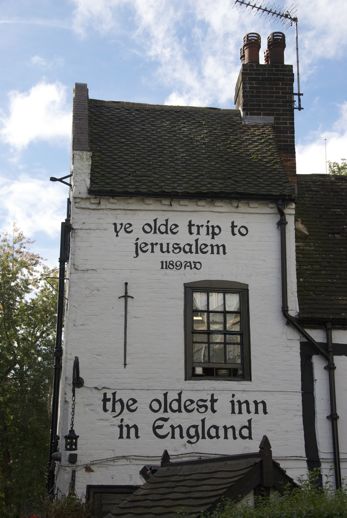 ye olde trip to
jerusalem
1189AD
the oldest inn
in England